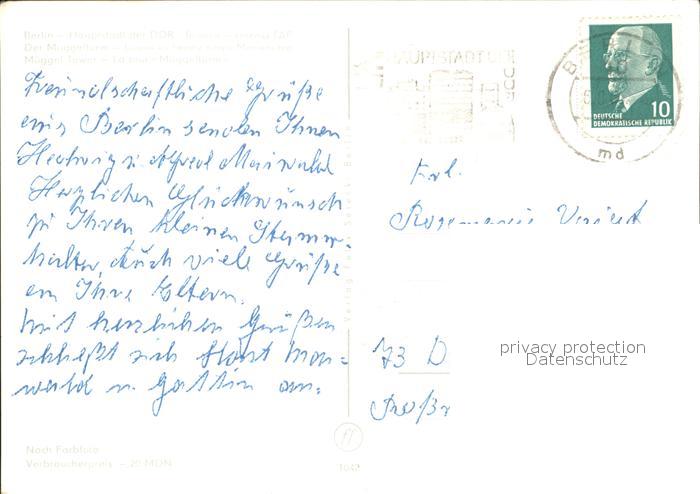 Berlin – Hauptstadt der DDR
Der Müggelturm
Müggel Tower – La tour «Müggelturm»
HAUPTSTADT DER
DDR
B
md
10
DEUTSCHE
DEMOKRATISCHE REPUBLIK
Freundschaftliche Grüße
aus Berlin senden Ihnen
Hedwig u. Alfred Maiwald
Herzlichen Glückwünsch
zu Ihren kleinen Stamm-
halter, Auch viele Grüße
an Ihre Eltern.
Mit herzlichen Grüßen
schließt sich Horst Mai=
wald u. Gattin an.
Frl.
Rosemarie
73 D
privacy protection
Datenschutz
Nach Farbfoto
Verbraucherpreis –,20 MDN
1042